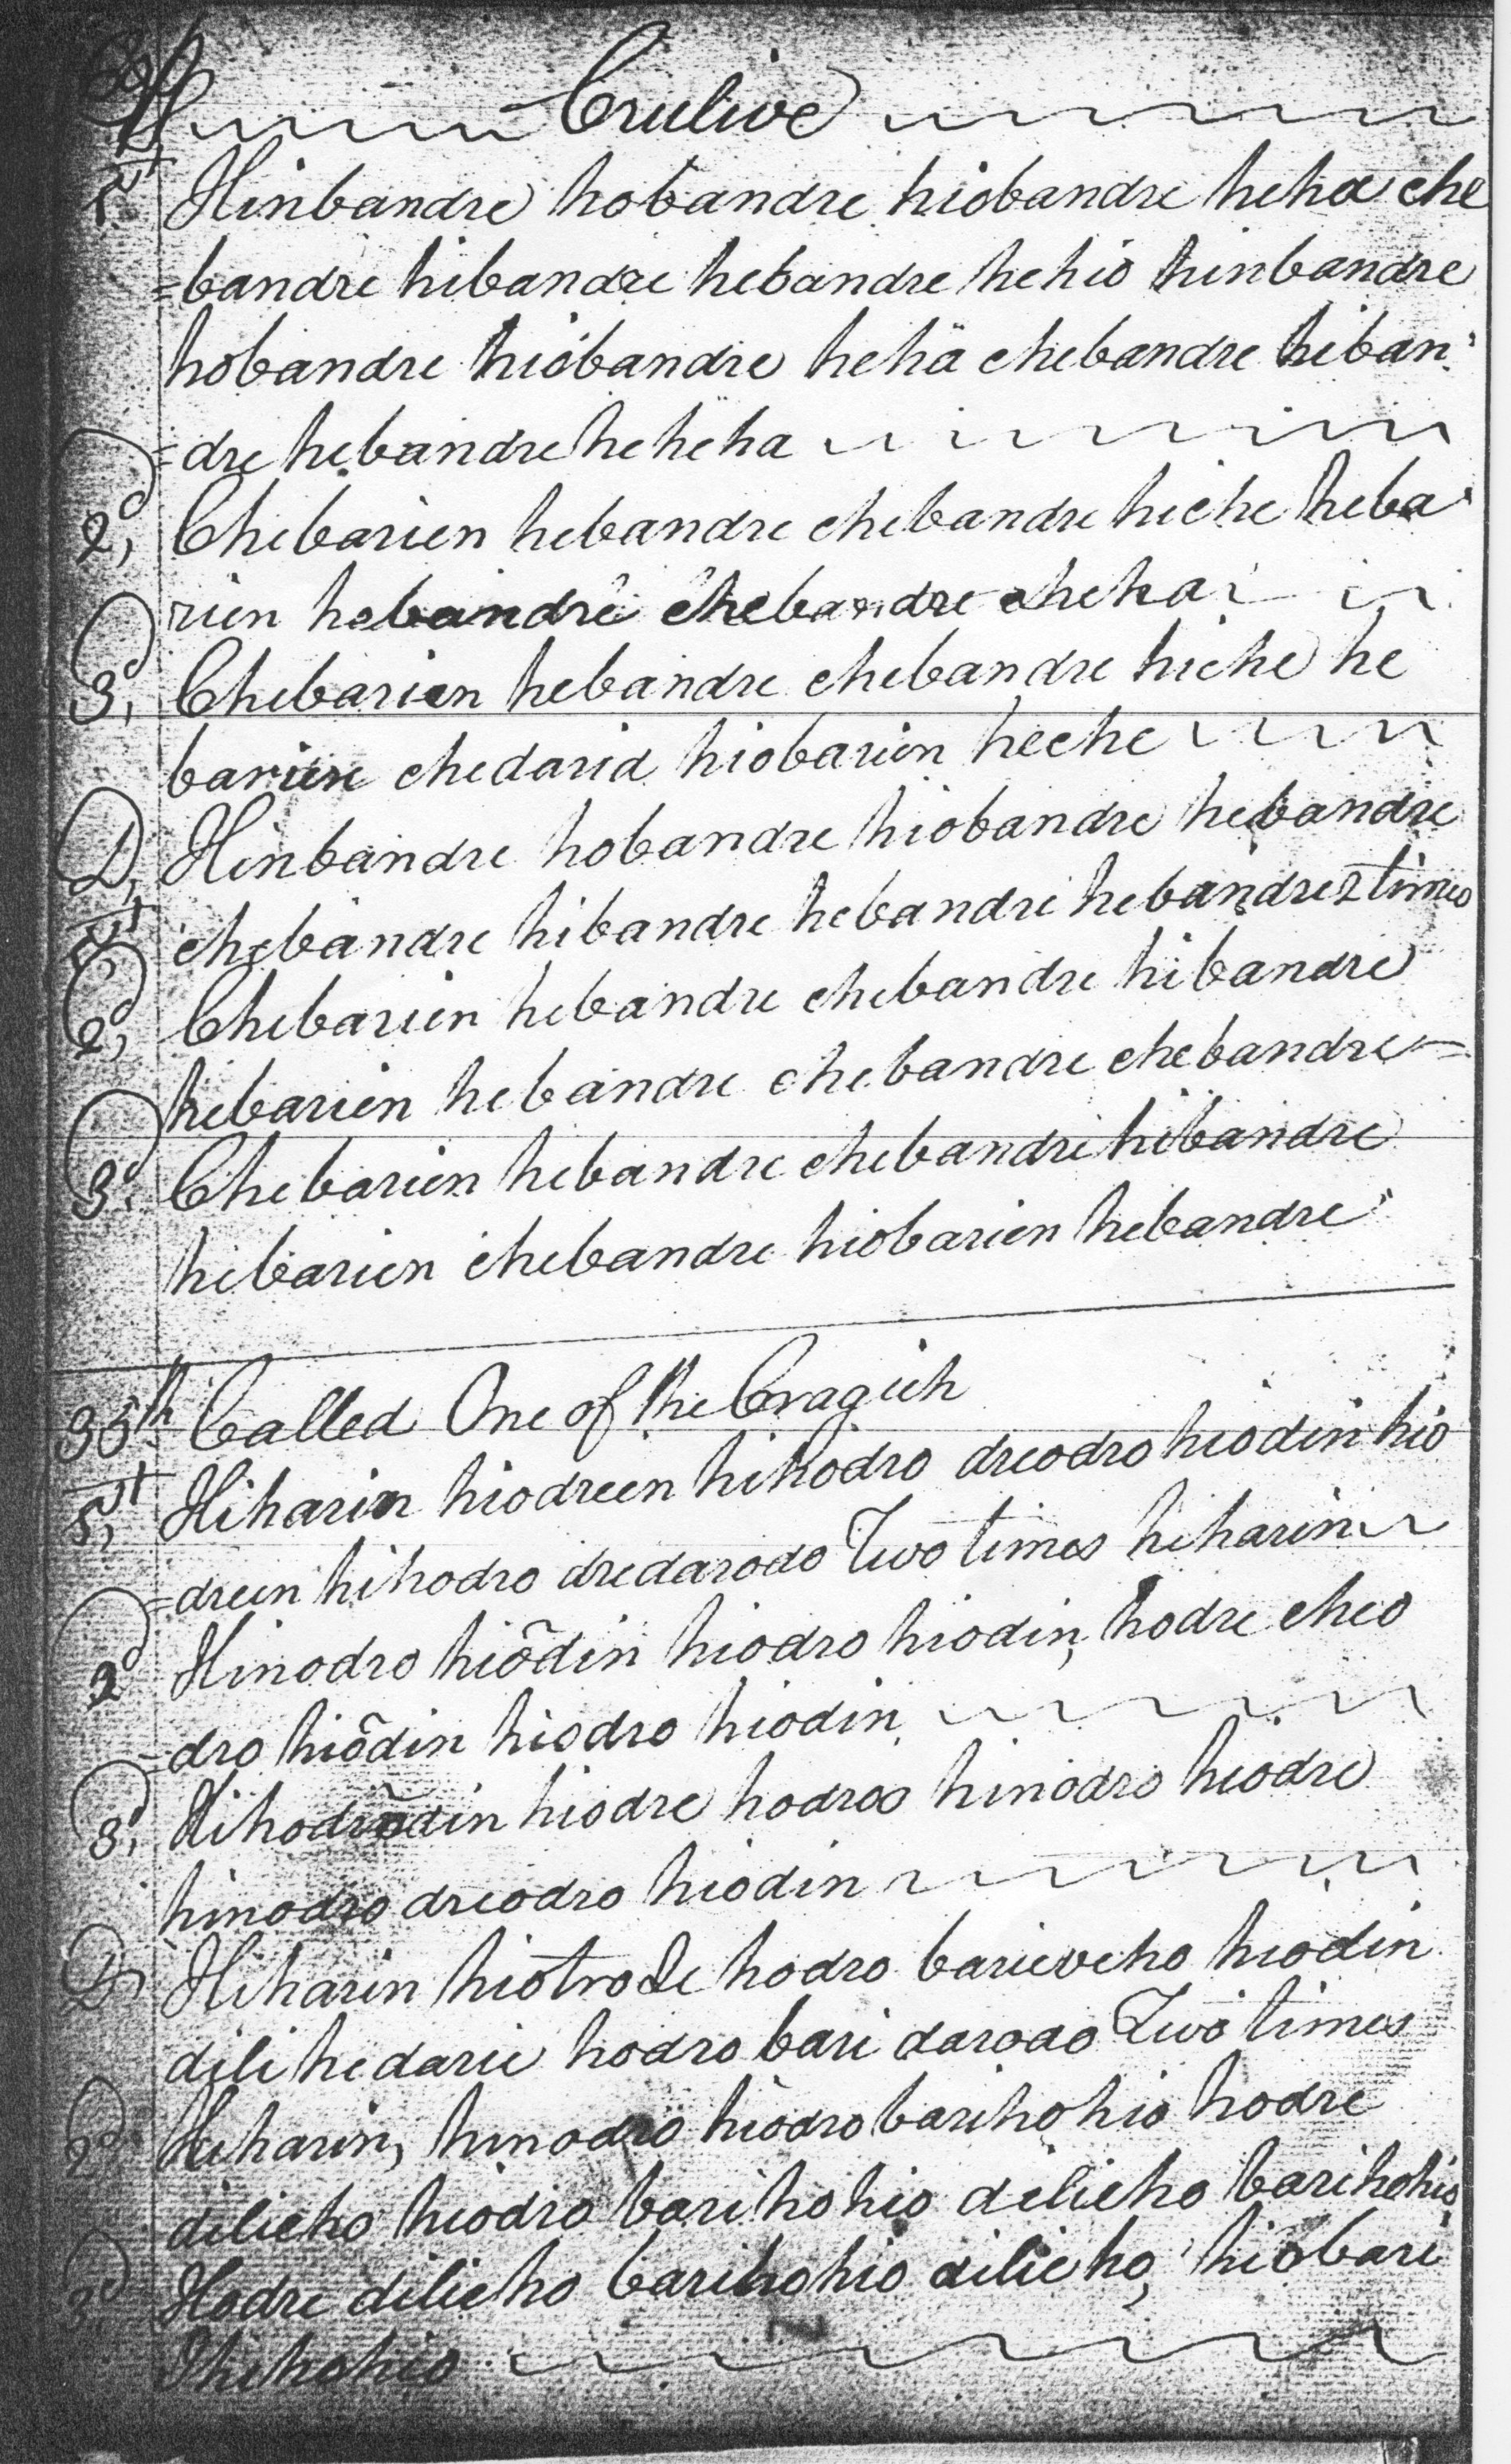 Crulive
1st Hinbandre hobandre hiobandre heha che
=bandre hibandre hebandre hehio hinbandre
hobandre hiobandre hehä chebandre hiban
=dre hebandre heheha
2d, Chebarien hebandre chebandre hiche heba
rien hebandre chebandre cheha
3d, Chebarien hebandre chebandre hiche he
barien chedarid hiobarien heche
D, Hinbandre hobandre hiobandre hebandre
1st chebandre hibandre hebandre hebandre 2 times
2d, Chebarien hebandre chebandre hibandre
hebarien hebandre chebandre chebandre
3d, Chebarien hebandre chebandre hibandre
hebarien chebandre hiobarien hebandre
35th Called One of the Cragich
1st, Hiharin hiodreen hihodro dreodro hiodin hio
=dreen hihodro dredarodo Two times hiharin
2d Hinodro hiõdin hiodro hiodin, hodre cheo
=dro hiõdin hiodro hiodin
3d, hiodre hodroo hinodro hiodre
hinodro dreodro hiodin
D, Hiharin hiotrode hodro barieveho hiodin
dili hedarie hodro bari darodo Two times
2d, Hiharin, hinodro hiodro barihohio hodre
dilieho hiodro barihohio dilieho barihohio
3d Hodre dilieho barihohio dilieho, hiobari